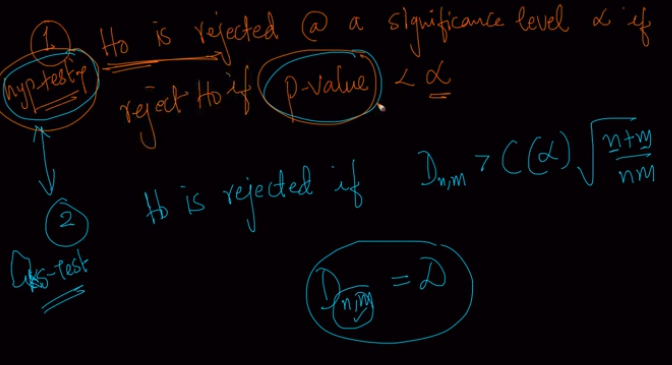 1 H0 is rejected @ a significance level α if
hyp-test
reject H0 if p-value < α
H0 is rejected if D_{n,m} > C(α) √((n+m)/nm)
2
KS-test
D_{n,m} = D